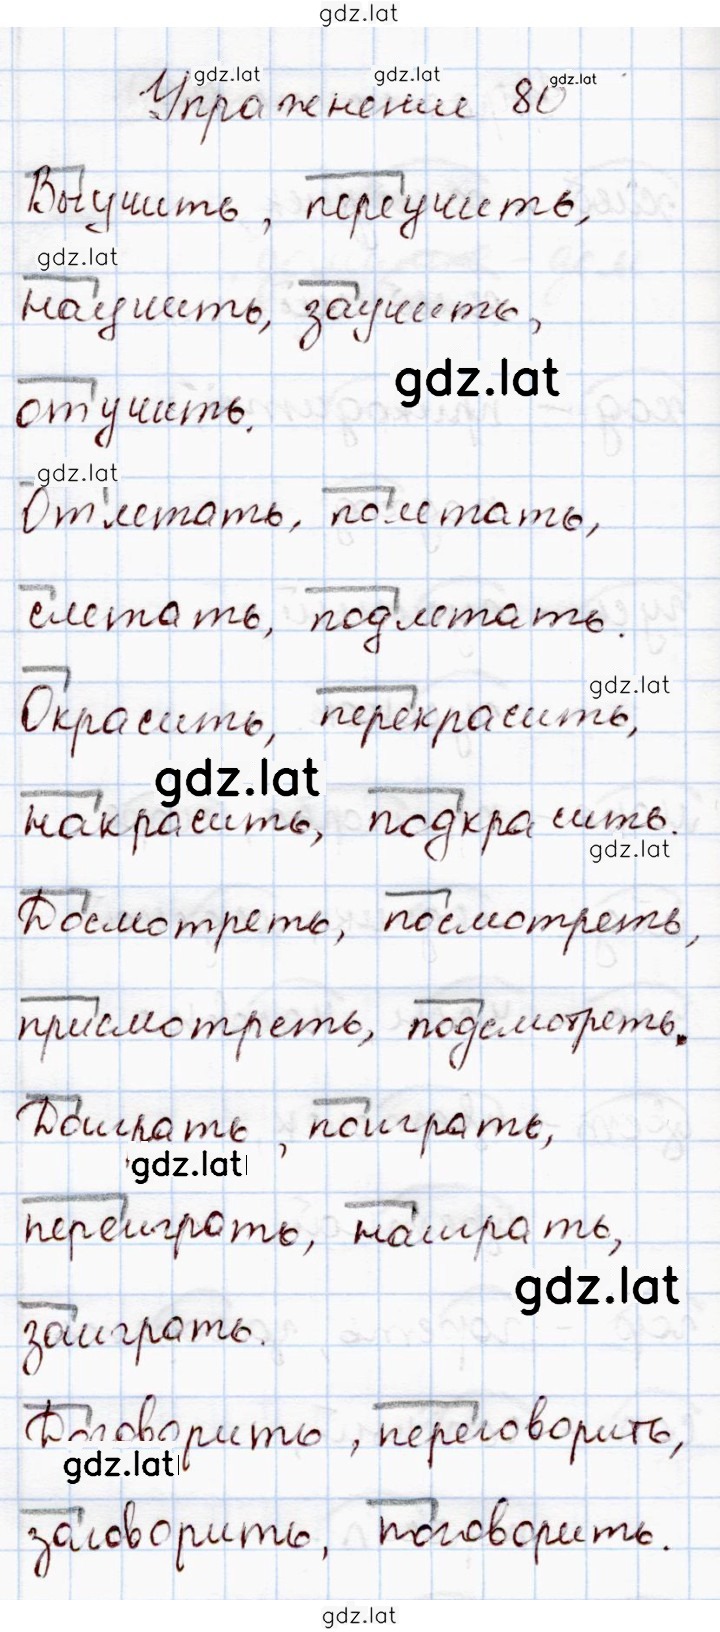 gdz.lat
gdz.lat gdz.lat gdz.lat
Упражнение 80
Выучить, переучить,
gdz.lat
научить, заучить,
gdz.lat
отучить.
gdz.lat
Отлетать, полетать,
слетать, подлетать.
gdz.lat
Окрасить, перекрасить,
gdz.lat
накрасить, подкрасить.
gdz.lat
Досмотреть, посмотреть,
присмотреть, подсмотреть.
Доиграть, поиграть,
gdz.lat
переиграть, наиграть,
gdz.lat
заиграть.
Договорить, переговорить,
gdz.lat
заговорить, поговорить.
gdz.lat